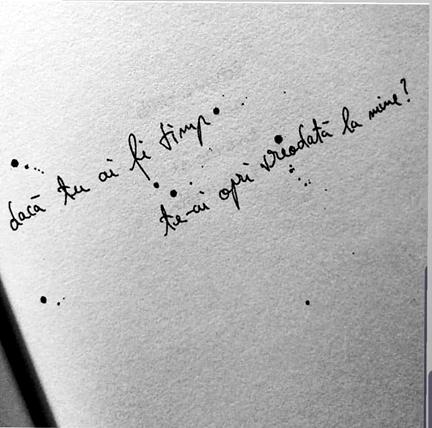 dacă tu ai fi timp
te-ai opri vreodată la mine?